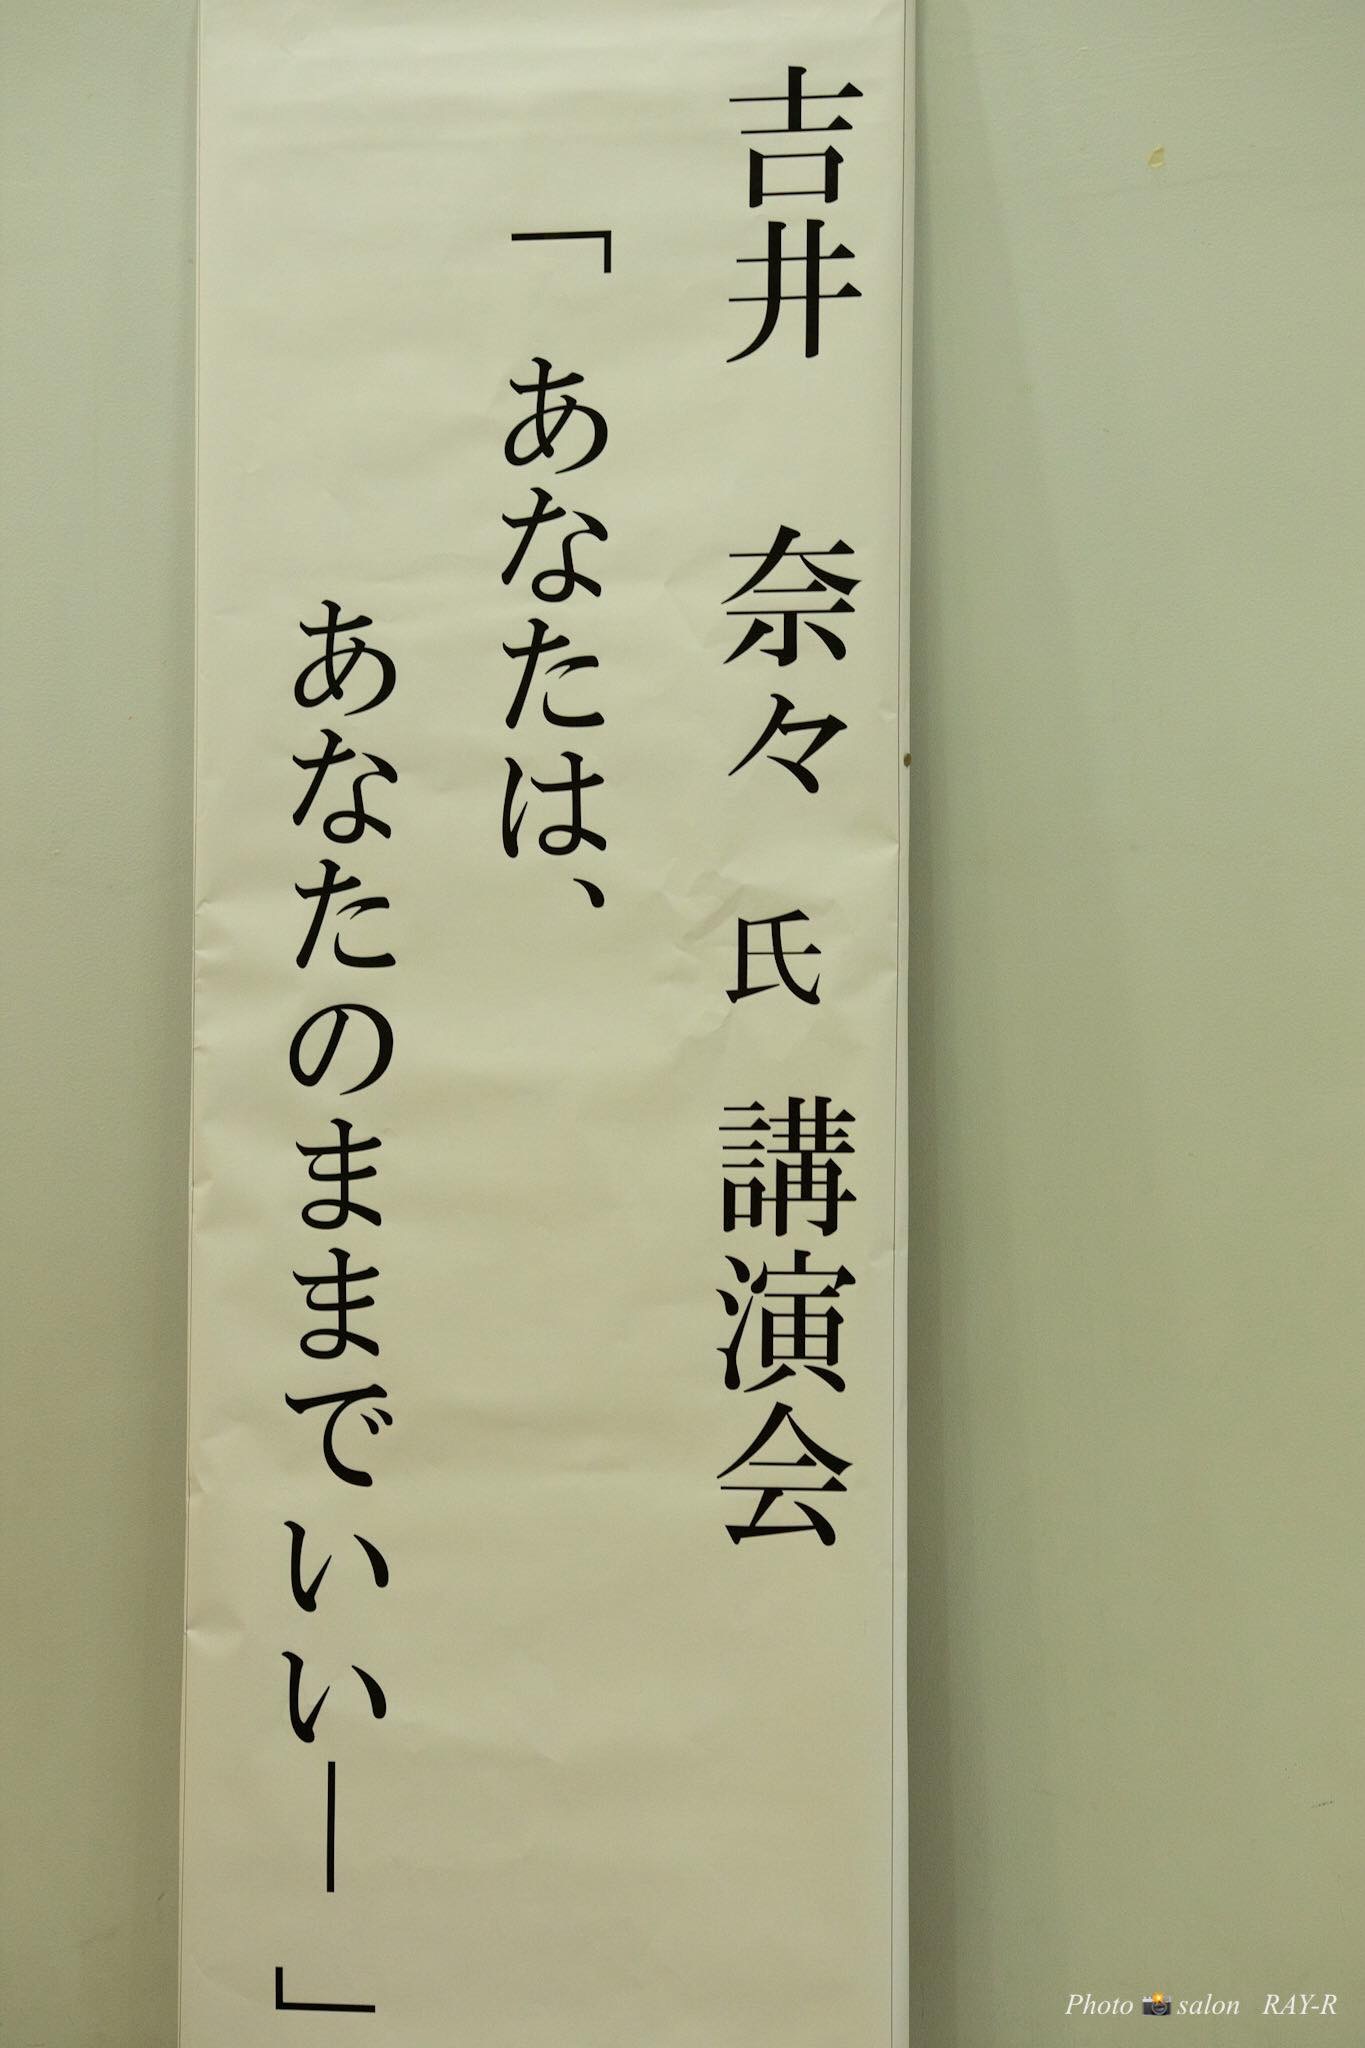 吉井　奈々　氏　講演会
「　あなたは、
あなたのままでいい―　」
Photo 📸 salon RAY-R